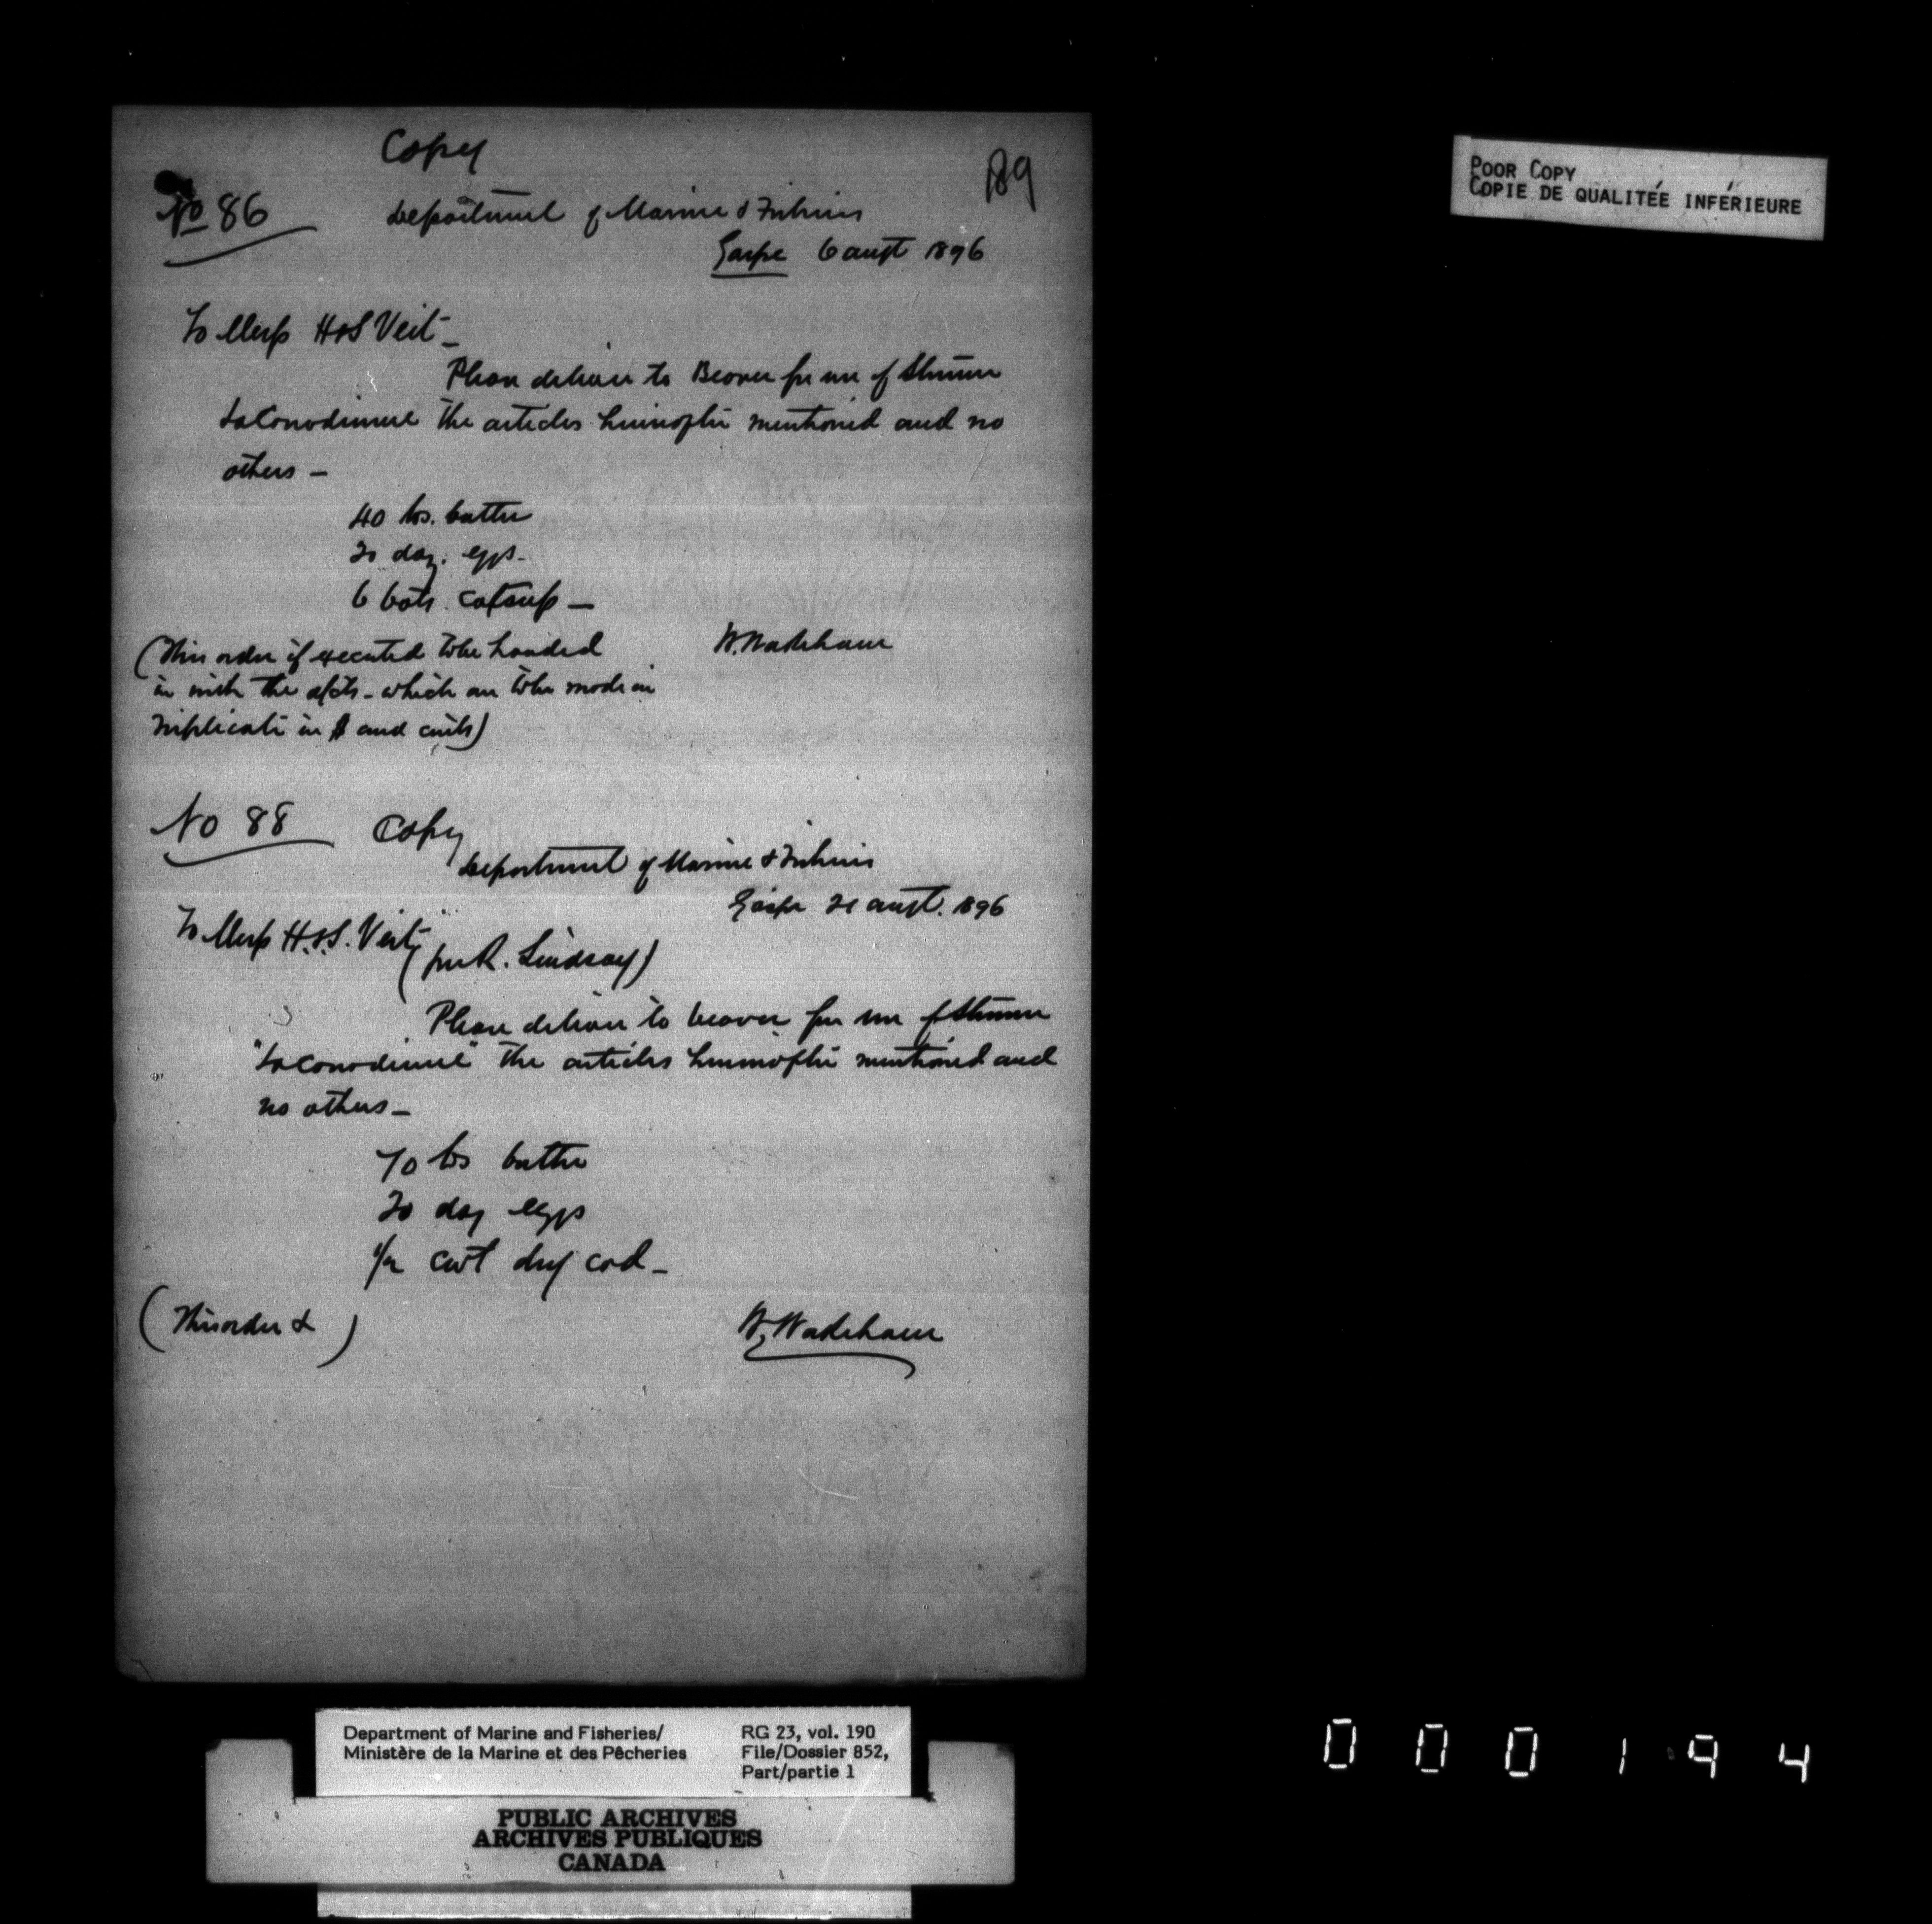 Copy
189
No 86
Department of Marine & Fisheries
Gaspe 6 augt 1896
To Mess H & S Veit -
Please deliver to Bearer for use of Steamer
La Canadienne the articles hereinafter mentioned and no
others -
40 lbs. butter
20 doz. eggs -
6 bots. catsup -
W. Wakeham
(This order if executed to be handed
in with the a/cts - which are to be made in
triplicate in $ and cents)
No 88 Copy
Department of Marine & Fisheries
Gaspe 21 augt. 1896
To Mess H. & S. Veit
(per R. Lindsay)
Please deliver to bearer for use of Steamer
"La Canadienne" the articles hereinafter mentioned and
no others -
70 lbs butter
20 doz eggs
1/2 cwt dry cod -
(This order &)
W. Wakeham
POOR COPY
COPIE DE QUALITÉE INFÉRIEURE
Department of Marine and Fisheries/
Ministère de la Marine et des Pêcheries
RG 23, vol. 190
File/Dossier 852,
Part/partie 1
PUBLIC ARCHIVES
ARCHIVES PUBLIQUES
CANADA
000194